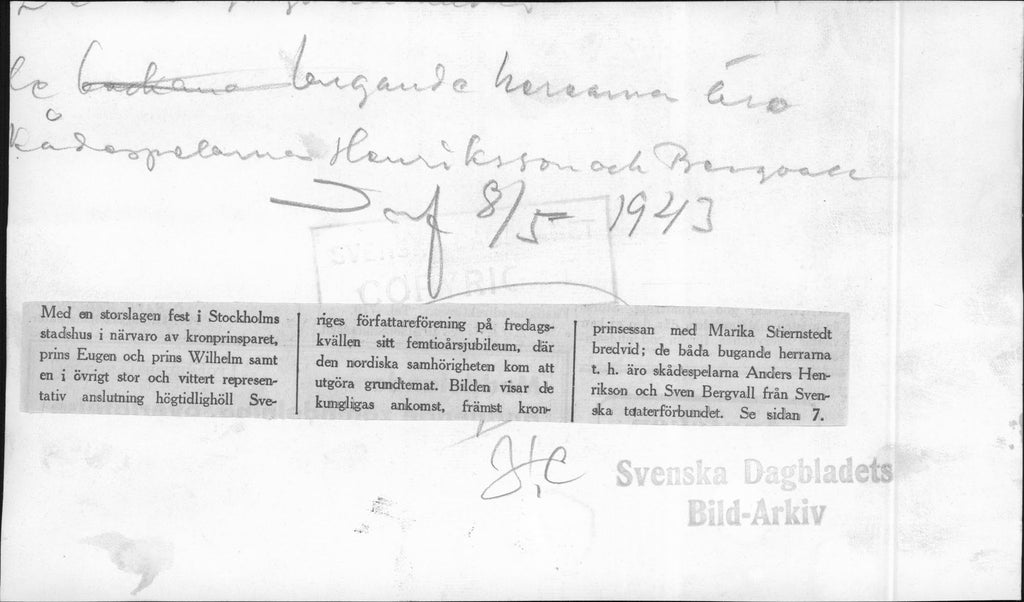 bugande herrarna äro
skådespelarna Henriksson och Bergvall
8/5 1943
SVENSKA
COPYRIG
Med en storslagen fest i Stockholms
stadshus i närvaro av kronprinsparet,
prins Eugen och prins Wilhelm samt
en i övrigt stor och vittert represen-
tativ anslutning högtidlighöll Sve-
riges författareförening på fredags-
kvällen sitt femtioårsjubileum, där
den nordiska samhörigheten kom att
utgöra grundtemat. Bilden visar de
kungligas ankomst, främst kron-
prinsessan med Marika Stiernstedt
bredvid; de båda bugande herrarna
t. h. äro skådespelarna Anders Hen-
rikson och Sven Bergvall från Sven-
ska teaterförbundet. Se sidan 7.
Svenska Dagbladets
Bild-Arkiv